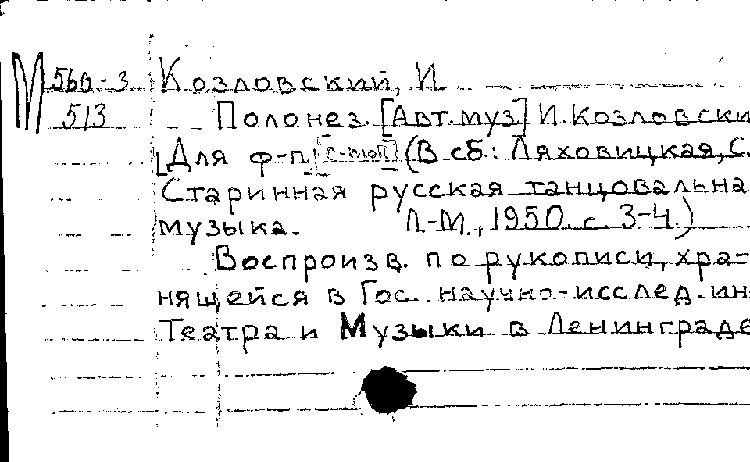 М 560-3 Козловский, И
513 Полонез. [Авт. муз] И. Козловски
Для ф-п. [c-moll] (В сб: Ляховицкая, С.
Старинная русская танцовальна
музыка. Л-М., 1950. с. 3-4.)
Воспроизв. по рукописи, хра-
нящейся в Гос. научно-исслед. ин
Театра и Музыки в Ленинграде